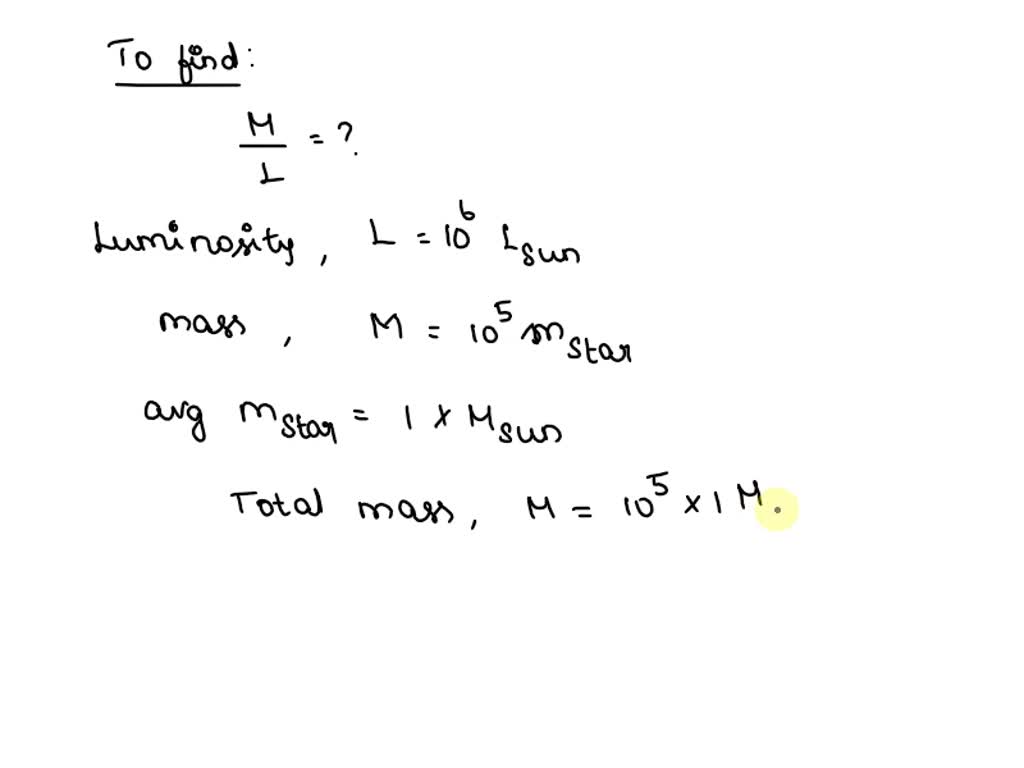 To find:
M/L = ?
Luminosity, L = 10^6 L_sun
mass, M = 10^5 m_star
avg m_star = 1 × M_sun
Total mass, M = 10^5 × 1 M